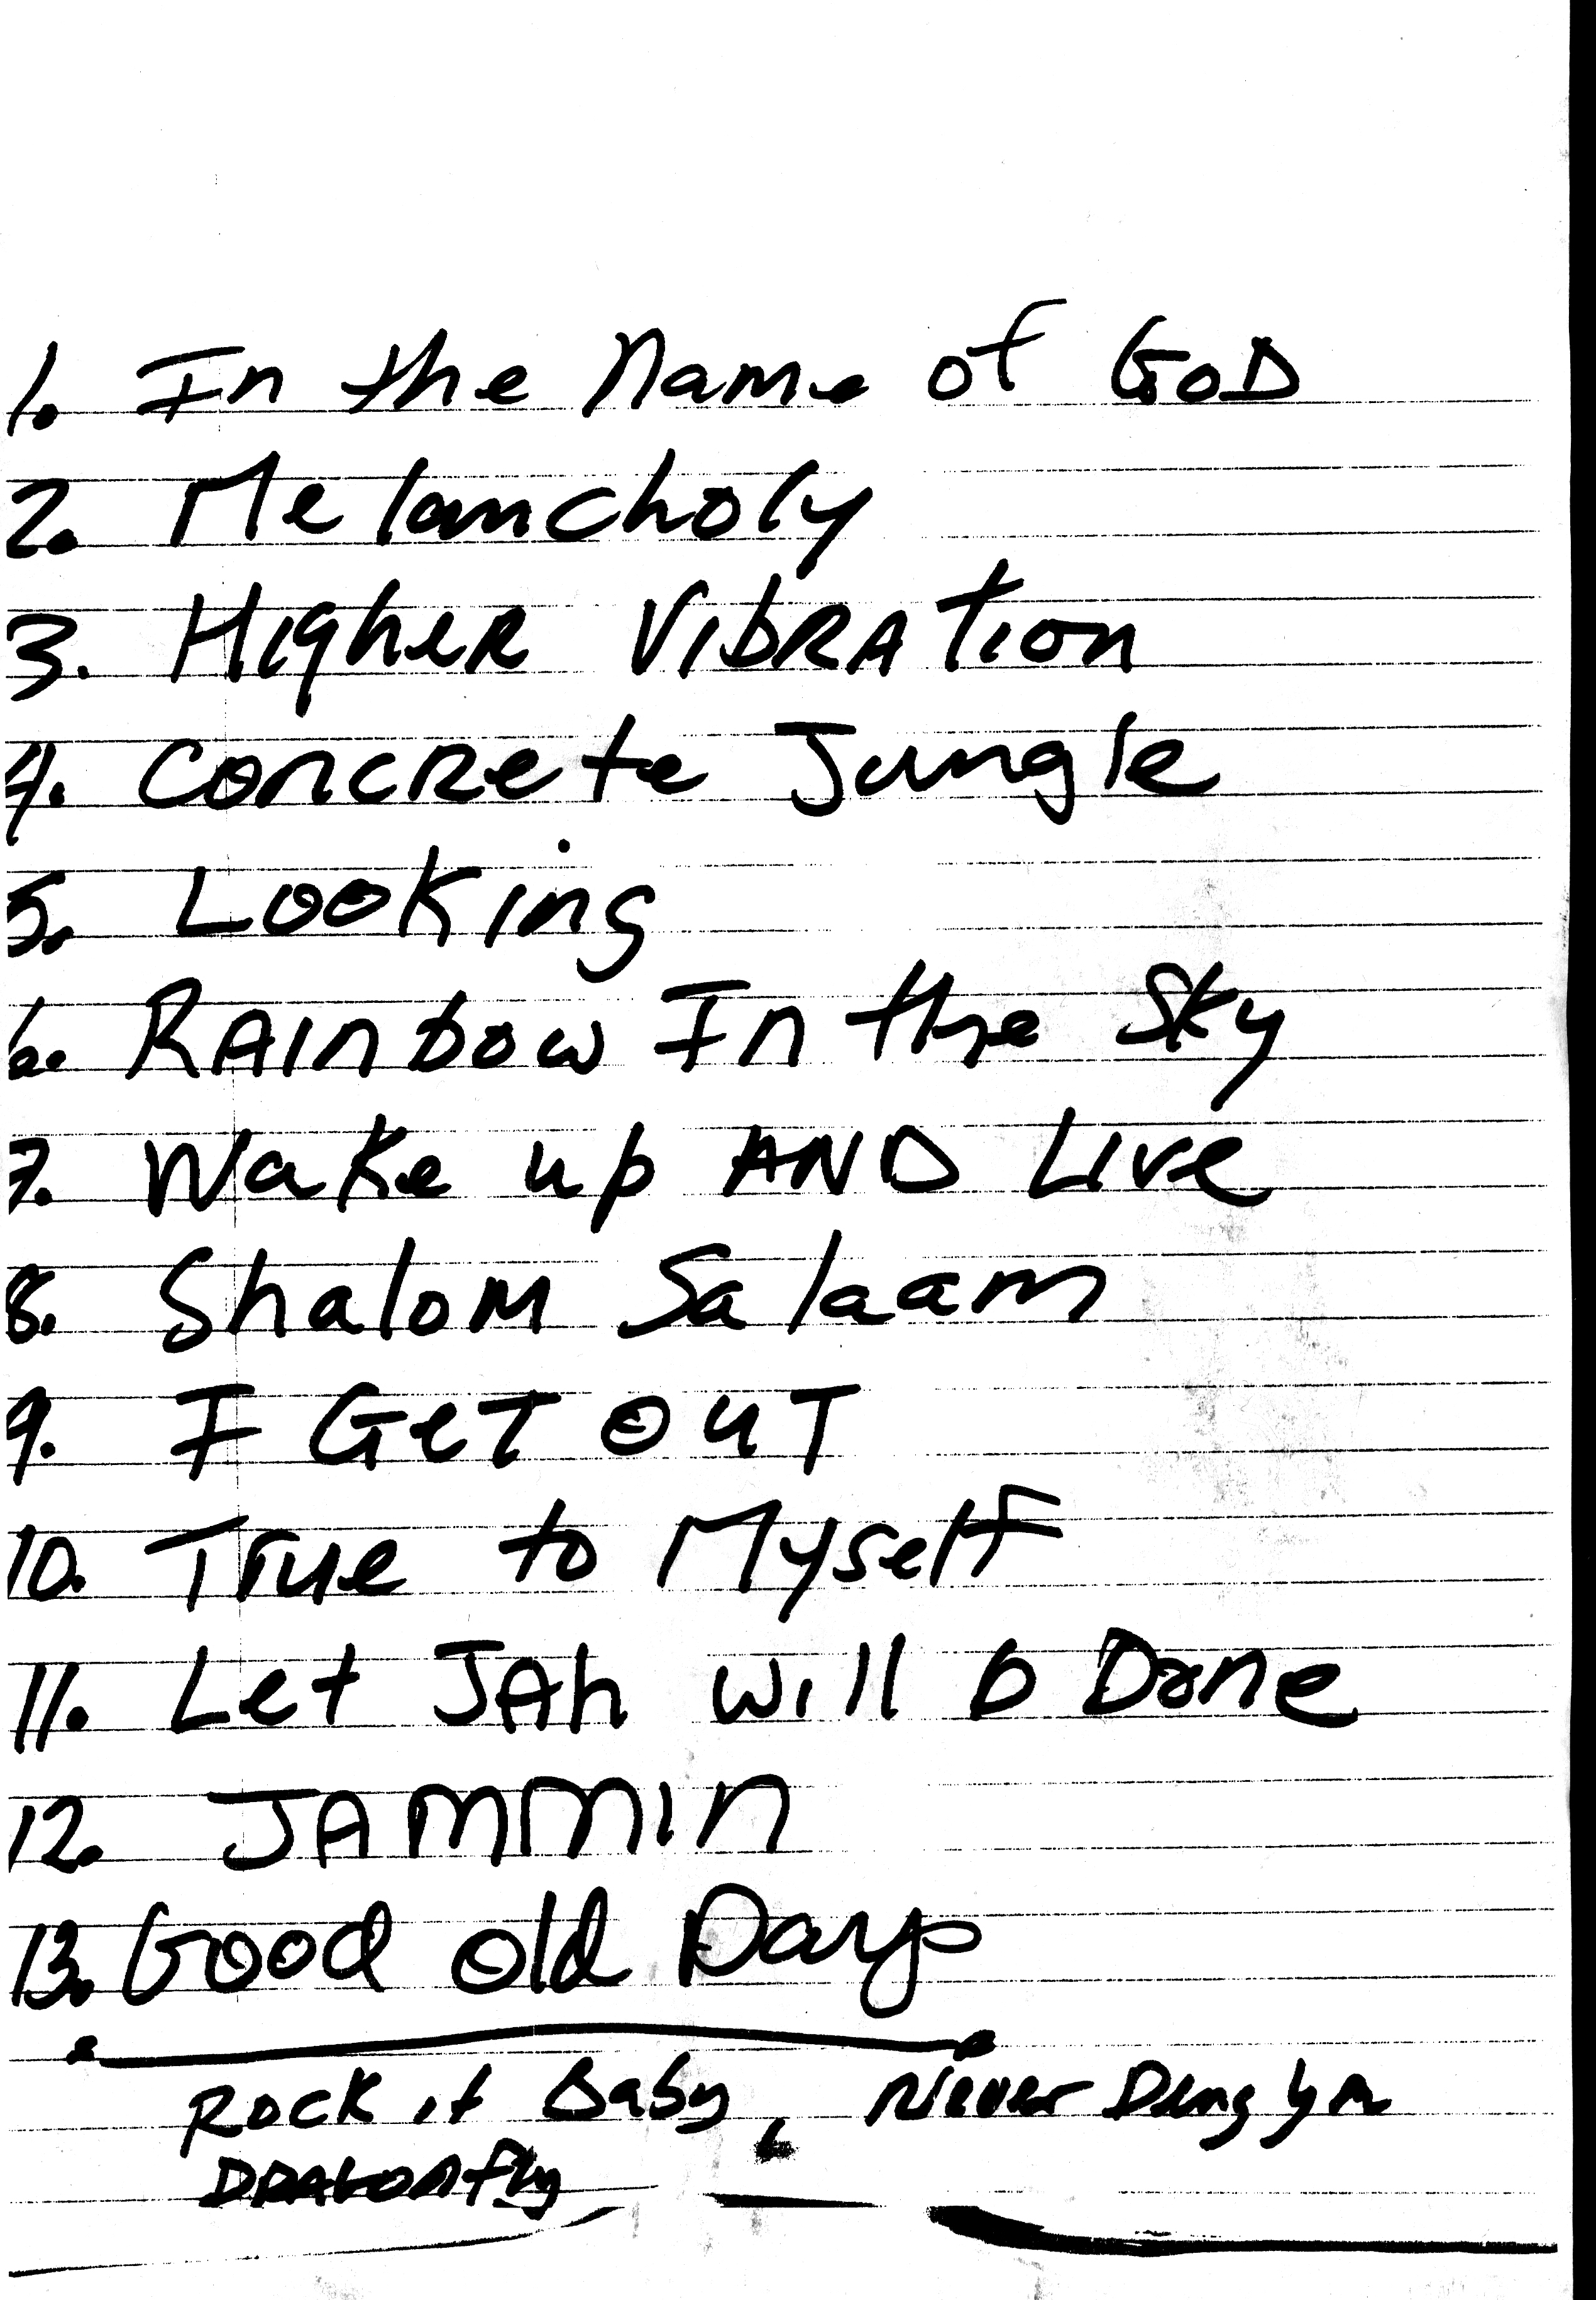 1. In the Name of GOD
2. Melancholy
3. Higher Vibration
4. Concrete Jungle
5. Looking
6. Rainbow In the Sky
7. Wake up AND Live
8. Shalom Salaam
9. I GeT OuT
10. True to Myself
11. Let JAh will b Done
12. JAMMIN
13. Good old Days
Rock it Baby, Never Deny
DRAGONfly